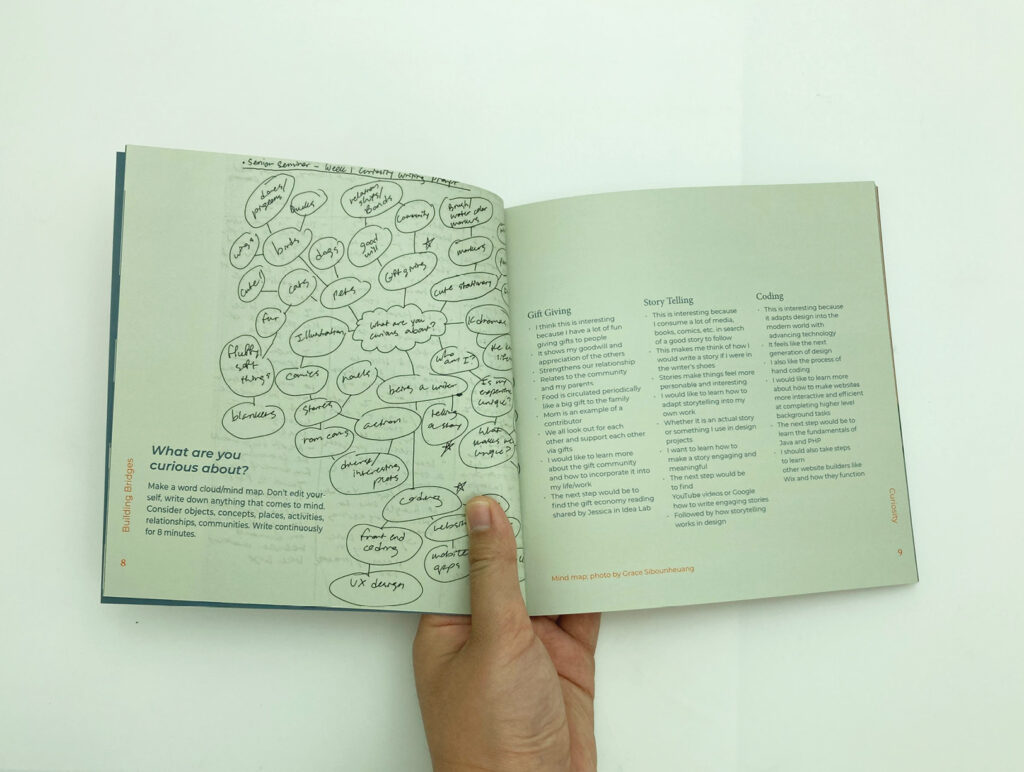 • Senior Seminar - Week 1 Curiosity Writing Prompt
doves/
pigeons
ducks
relation
ships/
Bonds
community
Brush/
water color
markers
wings
birds
dogs
good
will
markers
cute!
cats
pets
Gift giving
cute stationary
fur
Illustration
what are you
curious about?
K-dramas
fluffy,
soft
things
comics
novels
who
am I?
being a writer
Is my
experience
unique?
blankets
stories
action
telling
a story
rom coms
What
makes me
unique?
diverse/
interesting
plots
coding
front end
coding
mobile
apps
UX design
What are you
curious about?
Make a word cloud/mind map. Don't edit your-
self, write down anything that comes to mind.
Consider objects, concepts, places, activities,
relationships, communities. Write continuously
for 8 minutes.
Building Bridges
8
Gift Giving
· I think this is interesting
because i have a lot of fun
giving gifts to people
· It shows my goodwill and
appreciation of the others
· Strengthens our relationship
· Relates to the community
and my parents
· Food is circulated periodically
like a big gift to the family
· Mom is an example of a
contributor
· We all look out for each
other and support each other
via gifts
· I would like to learn more
about the gift community
and how to incorporate it into
my life/work
· The next step would be to
find the gift economy reading
shared by Jessica in Idea Lab
Story Telling
· This is interesting because
I consume a lot of media,
books, comics, etc. in search
of a good story to follow
· This makes me think of how I
would write a story if i were in
the writer's shoes
· Stories make things feel more
personable and interesting
· I would like to learn how to
adapt storytelling into my
own work
· Whether it is an actual story
or something I use in design
projects
· I want to learn how to
make a story engaging and
meaningful
· The next step would be
to find
YouTube videos or Google
how to write engaging stories
· Followed by how storytelling
works in design
Coding
· This is interesting because
it adapts design into the
modern world with
advancing technology
· It feels like the next
generation of design
· I also like the process of
hand coding
· I would like to learn more
about how to make websites
more interactive and efficient
at completing higher level
background tasks
· The next step would be to
learn the fundamentals of
Java and PHP
· I should also take steps
to learn
other website builders like
Wix and how they function
Mind map; photo by Grace Sibounheuang
Curiosity
9